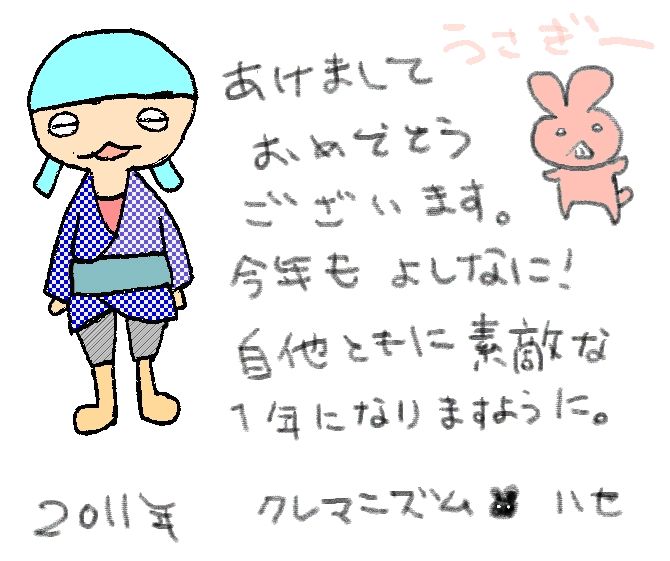 うさぎー
あけまして
おめでとう
ございます。
今年も よしなに!
自他ともに素敵な
1年になりますように。
2011年 クレマニズム ハセ